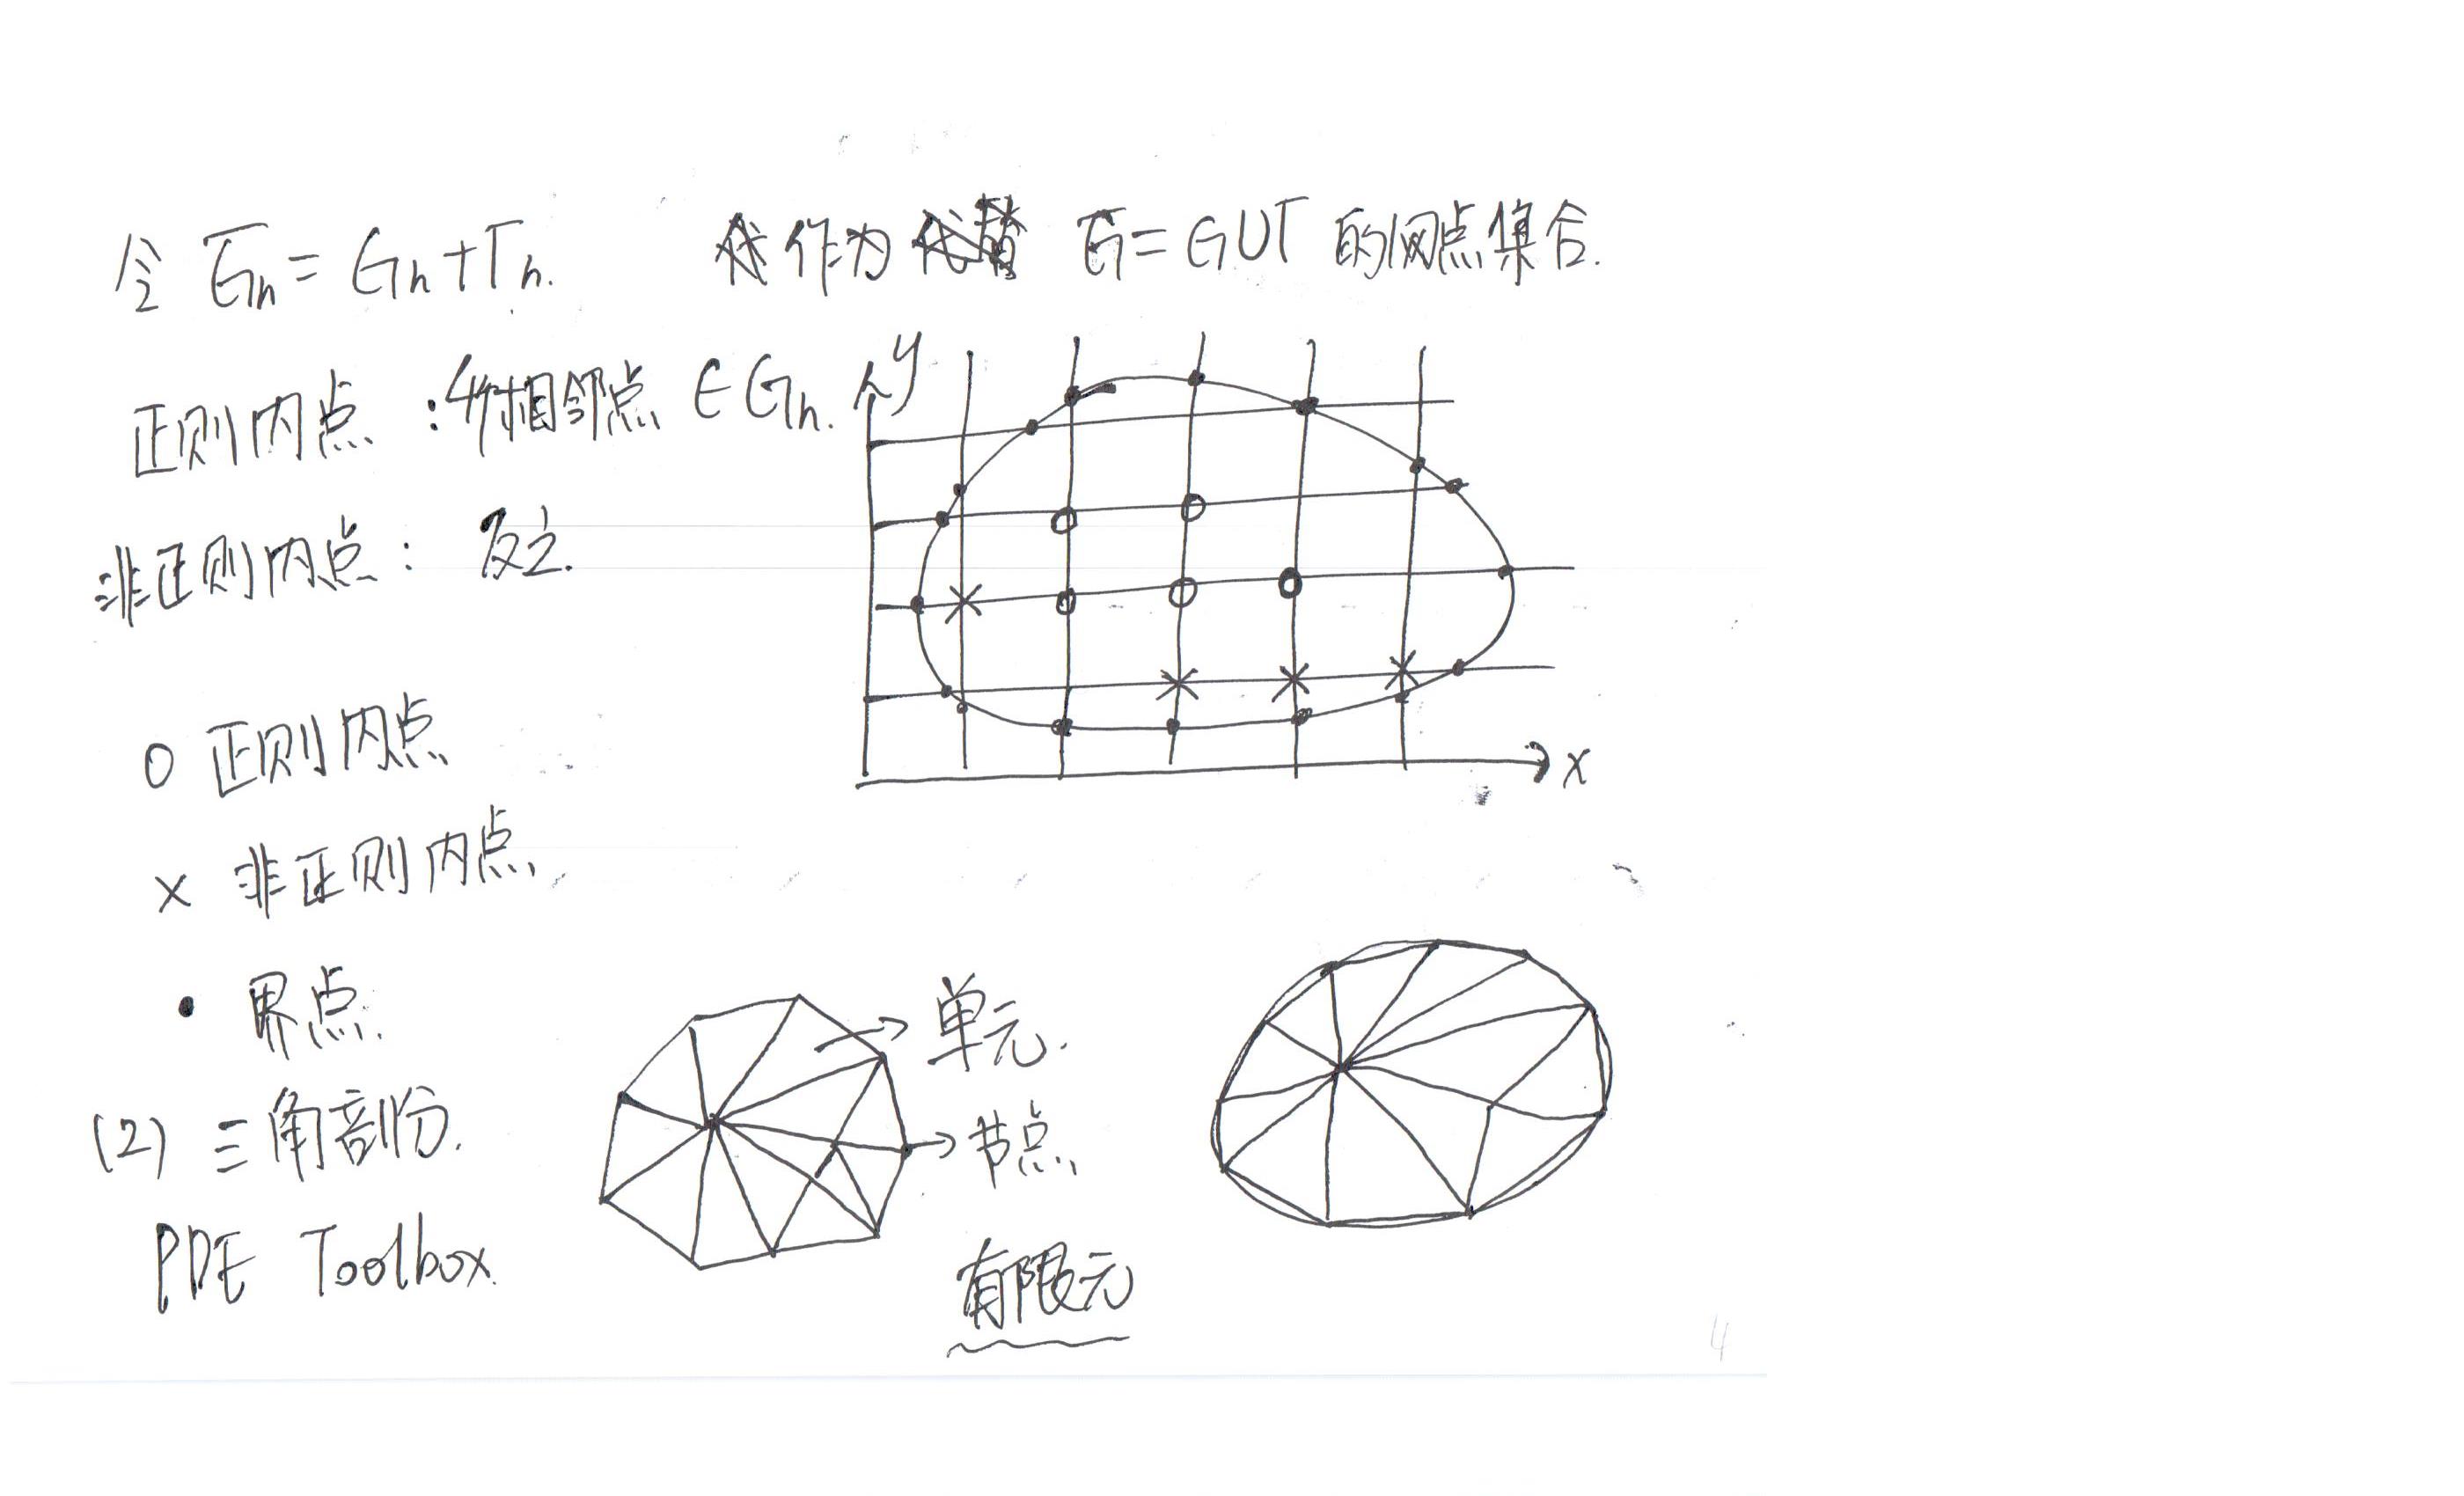 令 Ḡh = Gh + Γh. 作为 Ḡ = G∪Γ 的网点集合.
正则内点:4个相邻点 ∈ Gh.
非正则内点: 反之.
y
x
o 正则内点
x 非正则内点
• 界点.
单元.
(2) 三角剖份.
节点
PDE Toolbox.
有限元
4